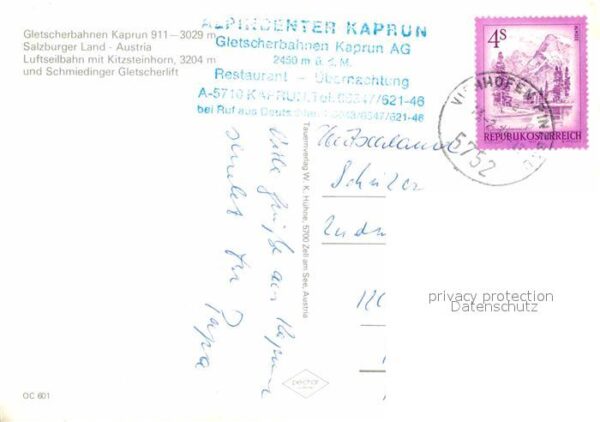 Gletscherbahnen Kaprun 911 – 3029 m
Salzburger Land - Austria
Luftseilbahn mit Kitzsteinhorn, 3204 m
und Schmiedinger Gletscherlift
ALPINCENTER KAPRUN
Gletscherbahnen Kaprun AG
2450 m ü. d. M.
Restaurant – Übernachtung
A-5710 KAPRUN, Tel. 06547/621-46
bei Ruf aus Deutschland
4s
REPUBLIK ÖSTERREICH
VIEHHOFEN, PINZGAU
5752
Tauernverlag W. K. Hühne, 5700 Zell am See, Austria
Viele Grüße aus Kaprun
sendet Dir Papa
privacy protection
Datenschutz
pechar
OC 601